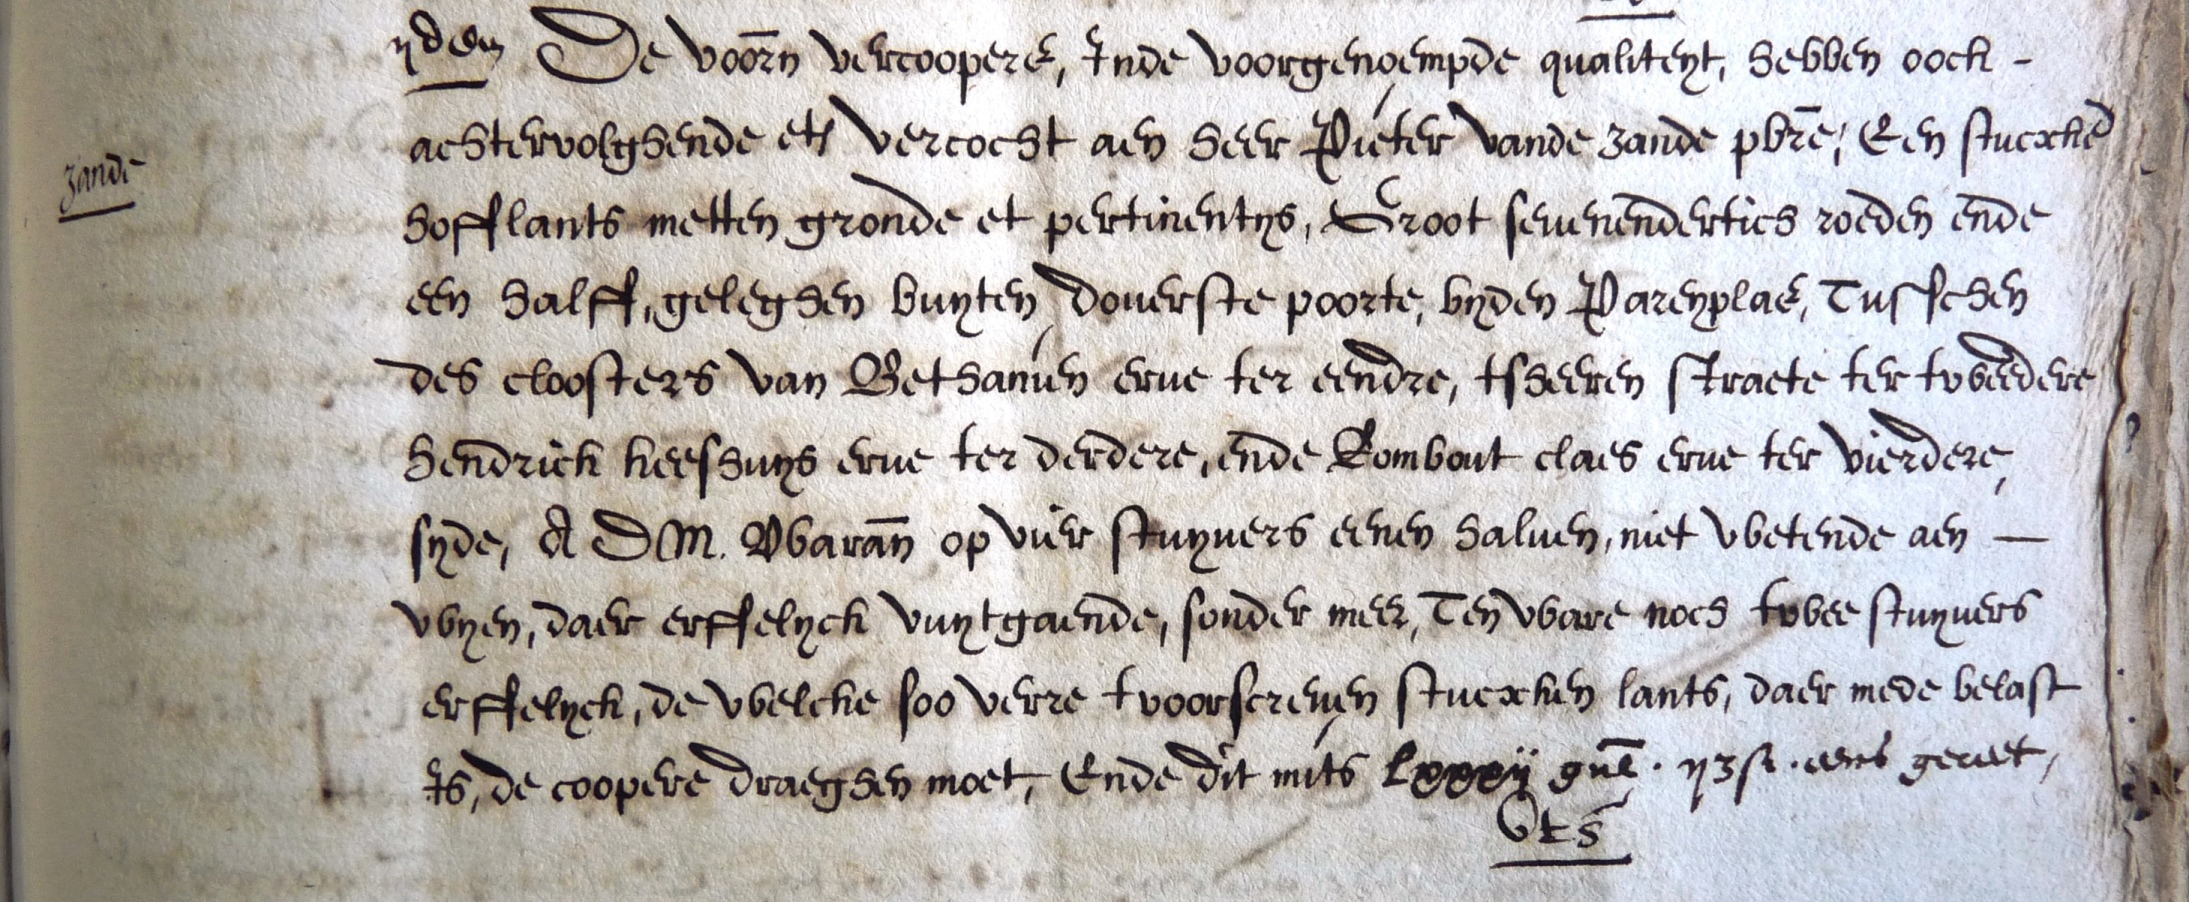 ydem De voorn vercoopere, Inde voorgenoempde qualiteyt, hebben oock -
achtervolghende etc vercocht aen heer Pieter vande zande pbre, Een stucxken
zande
hofflants metten gronde et pertinentys, Groot sevenendertich roeden ende
een halff, geleghen buyten doverste poorte, byden Pareyplae, Tusschen
des cloosters van Bethanien erve ter eendre, tsheeren straete ter tweedere
hendrick keeshuys erve ter derdere, ende Rombout claes erve ter vierdere,
syde, A D M. Waran op vier stuyvers eenen halven, niet wetende aen —
wyen, daer erffelyck vuytgaende, sonder meer, Ten ware noch twee stuyvers
erffelyck, de welcke soo verre tvoorscreven stucxken lants, daer mede belast
is, de coopere draeghen moet, Ende dit mits lxxxij gul . eens gereet,
Vts